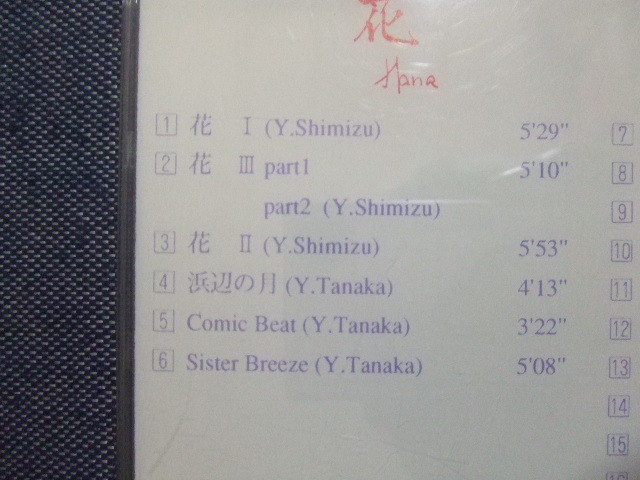 花
Hana
1 花 Ⅰ (Y.Shimizu) 5'29"
2 花 Ⅲ part1 5'10"
part2 (Y.Shimizu)
3 花 Ⅱ (Y.Shimizu) 5'53"
4 浜辺の月 (Y.Tanaka) 4'13"
5 Comic Beat (Y.Tanaka) 3'22"
6 Sister Breeze (Y.Tanaka) 5'08"
7
8
9
10
11
12
13
14
15